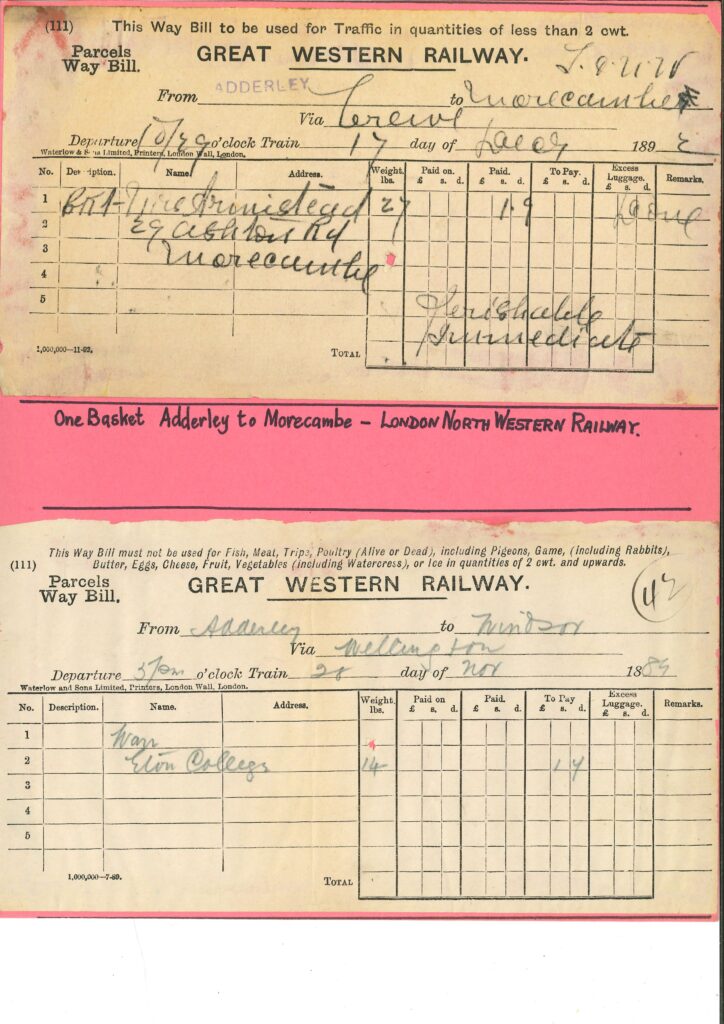 (111) This Way Bill to be used for Traffic in quantities of less than 2 cwt.
Parcels Way Bill. GREAT WESTERN RAILWAY.
From ADDERLEY to Morecambe
Via Crewe
Departure 10/29 o'clock Train 17 day of 189
Waterlow & Sons Limited, Printers, London Wall, London.
No. Description. Name. Address. Weight. lbs. Paid on. £ s. d. Paid. £ s. d. To Pay. £ s. d. Excess Luggage. £ s. d. Remarks.
1 Bkt Mrs Armistead 27 1.9
2 29 Ashton Rd
3 Morecambe
4
5 Perishable
Immediate
1,000,000—11-92. TOTAL
One Basket Adderley to Morecambe – LONDON NORTH WESTERN RAILWAY.
This Way Bill must not be used for Fish, Meat, Trips, Poultry (Alive or Dead), including Pigeons, Game, (including Rabbits),
(111) Butter, Eggs, Cheese, Fruit, Vegetables (including Watercress), or Ice in quantities of 2 cwt. and upwards.
Parcels Way Bill. GREAT WESTERN RAILWAY. 42
From Adderley to Windsor
Via Wellington
Departure 5pm o'clock Train 28 day of Nov 1889
Waterlow and Sons Limited, Printers, London Wall, London.
No. Description. Name. Address. Weight lbs. Paid on £ s. d. Paid. £ s. d. To Pay £ s. d. Excess Luggage. £ s. d. Remarks.
1 Warr
2 Eton College 14 1 4
3
4
5
1,000,000—7-89. TOTAL